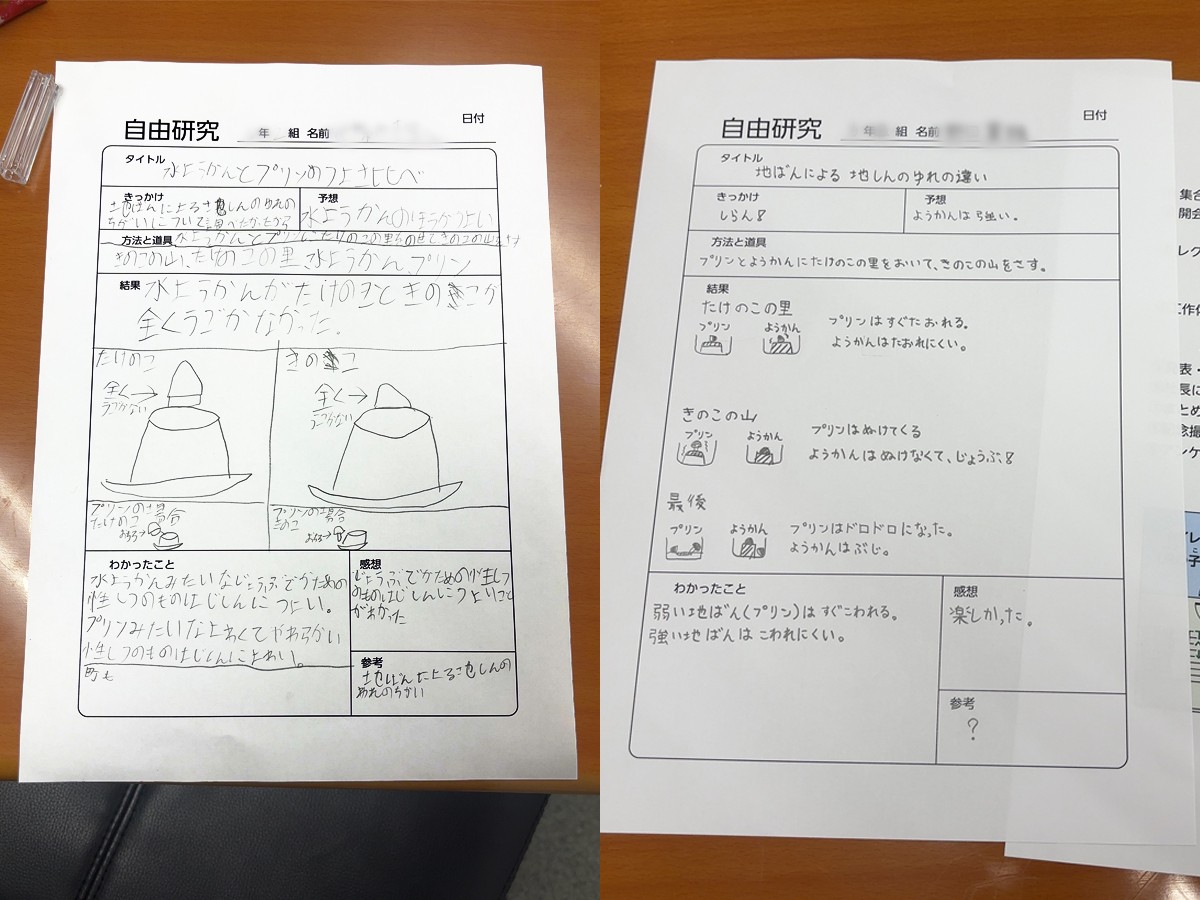 自由研究
年 組 名前
日付
タイトル
水ようかんとプリンのつよさヒヒベ
きっかけ
地ばんによる地しんのゆれの
ちがいについて調べたかったから
予想
水ようかんのほうがつよい
方法と道具
水ようかんとプリンにたけのこの里をのせてきのこの山をさす
きのこの山、たけのこの里、水ようかん、プリン
結果
水ようかんがたけのことときのこが
全くうごかなかった。
たけのこ
全く→
うごかない
きのこ
全く→
うごかない
プリンの場合
たけのこ
おちる→
プリンの場合
きのこ
おちる→
わかったこと
水ようかんみたいなじょうぶでかための
性しつのものはじしんにつよい。
プリンみたいなよわくてやわらかい
性しつのものはじしんによわい。
感想
じょうぶでかための性しつ
のものはじしんにつよいこと
がわかった
参考
地ばんによる地しんの
ゆれのちがい
自由研究
年 組 名前
日付
タイトル
地ばんによる 地しんのゆれの違い
きっかけ
しらん!
予想
ようかんは強い。
方法と道具
プリンとようかんにたけのこの里をおいて、きのこの山をさす。
結果
たけのこの里
プリン
ようかん
プリンはすぐたおれる。
ようかんはたおれにくい。
きのこの山
プリン
ようかん
プリンはぬけてくる
ようかんはぬけなくて、じょうぶ!
最後
プリン
ようかん
プリンはドロドロになった。
ようかんはぶじ。
わかったこと
弱い地ばん(プリン)はすぐこわれる。
強い地ばんはこわれにくい。
感想
楽しかった。
参考
?
集合
開会
レク
工作体
表・
長に
とめ
念撮
ンケ
イレ
子